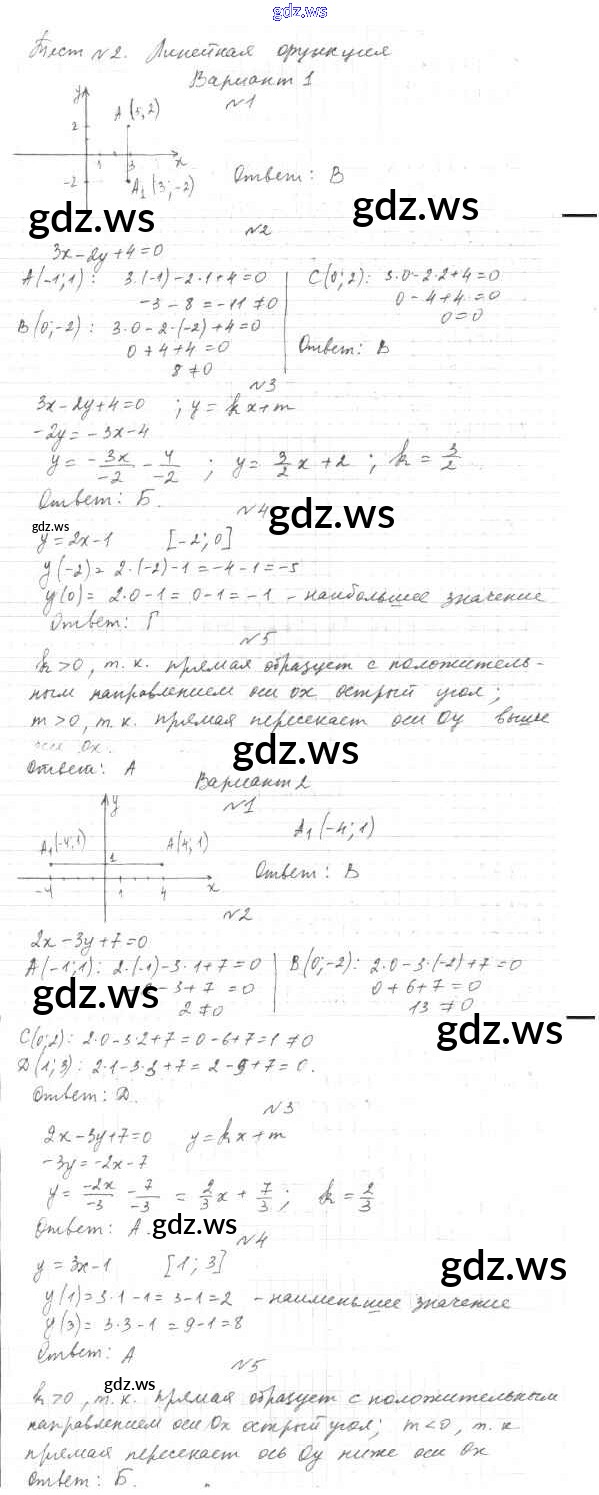 gdz.ws
Тест №2. Линейная функция
Вариант 1
№1
y
A (3; 2)
2
1 3 x
-2 A₁ (3; -2)
Ответ: В
gdz.ws gdz.ws
№2
3x-2y+4=0
A(-1; 1): 3·(-1)-2·1+4=0
-3-8=-11≠0
B(0; -2): 3·0-2·(-2)+4=0
0+4+4=0
8≠0
C(0; 2): 3·0-2·2+4=0
0-4+4=0
0=0
Ответ: В
№3
3x-2y+4=0 ; y=kx+m
-2y=-3x-4
y = -3x/-2 - 4/-2 ; y = 3/2 x + 2 ; k = 3/2
Ответ: Б.
№4
gdz.ws gdz.ws
y=2x-1 [-2; 0]
y(-2)=2·(-2)-1=-4-1=-5
y(0)=2·0-1=0-1=-1 - наибольшее значение
Ответ: Г
№5
k>0, т.к. прямая образует с положитель-
ным направлением оси ox острый угол;
m>0, т.к. прямая пересекает оси Oy выше
оси Ox.
gdz.ws
Ответ: А
Вариант 2
№1
y
A₁(-4; 1) A(4; 1)
1
-4 1 4 x
A₁(-4; 1)
Ответ: В
№2
2x-3y+7=0
A(-1; 1): 2·(-1)-3·1+7=0
-2-3+7=0
2≠0
B(0; -2): 2·0-3·(-2)+7=0
0+6+7=0
13≠0
gdz.ws gdz.ws
C(0; 2): 2·0-3·2+7=0-6+7=1≠0
D(1; 3): 2·1-3·3+7=2-9+7=0.
Ответ: D.
№3
2x-3y+7=0 y=kx+m
-3y=-2x-7
y = -2x/-3 - 7/-3 = 2/3 x + 7/3 ; k = 2/3
Ответ: А.
gdz.ws
№4
y=3x-1 [1; 3]
gdz.ws
y(1)=3·1-1=3-1=2 - наименьшее значение
y(3)=3·3-1=9-1=8
Ответ: А
gdz.ws
№5
k>0, т.к. прямая образует с положительным
направлением оси Ox острый угол; m<0, т.к
прямая пересекает ось Oy ниже оси Ox
Ответ: Б.